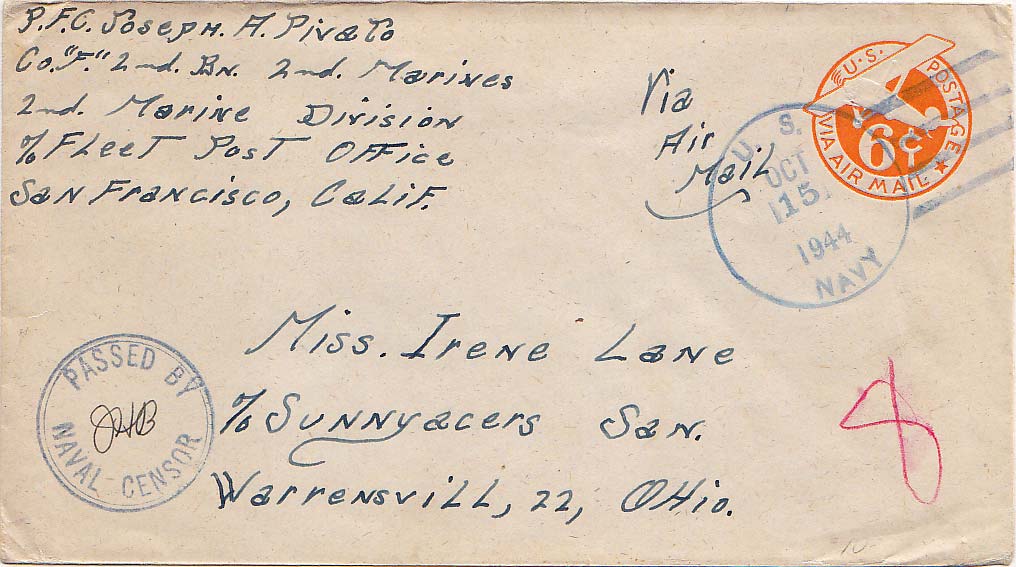 P.F.C. Joseph. A. Pivato
Co. "F." 2-nd. Bn. 2-nd. Marines
2-nd. Marine Division
℅ Fleet Post Office
San Francisco, Calif.
Via
Air
Mail
U.S. POSTAGE
6¢
VIA AIR MAIL
U. S.
OCT
15
1944
NAVY
Miss. Irene Lane
℅ Sunnyacers San.
Warrensvill, 22, Ohio.
PASSED BY
JHB
NAVAL CENSOR
8